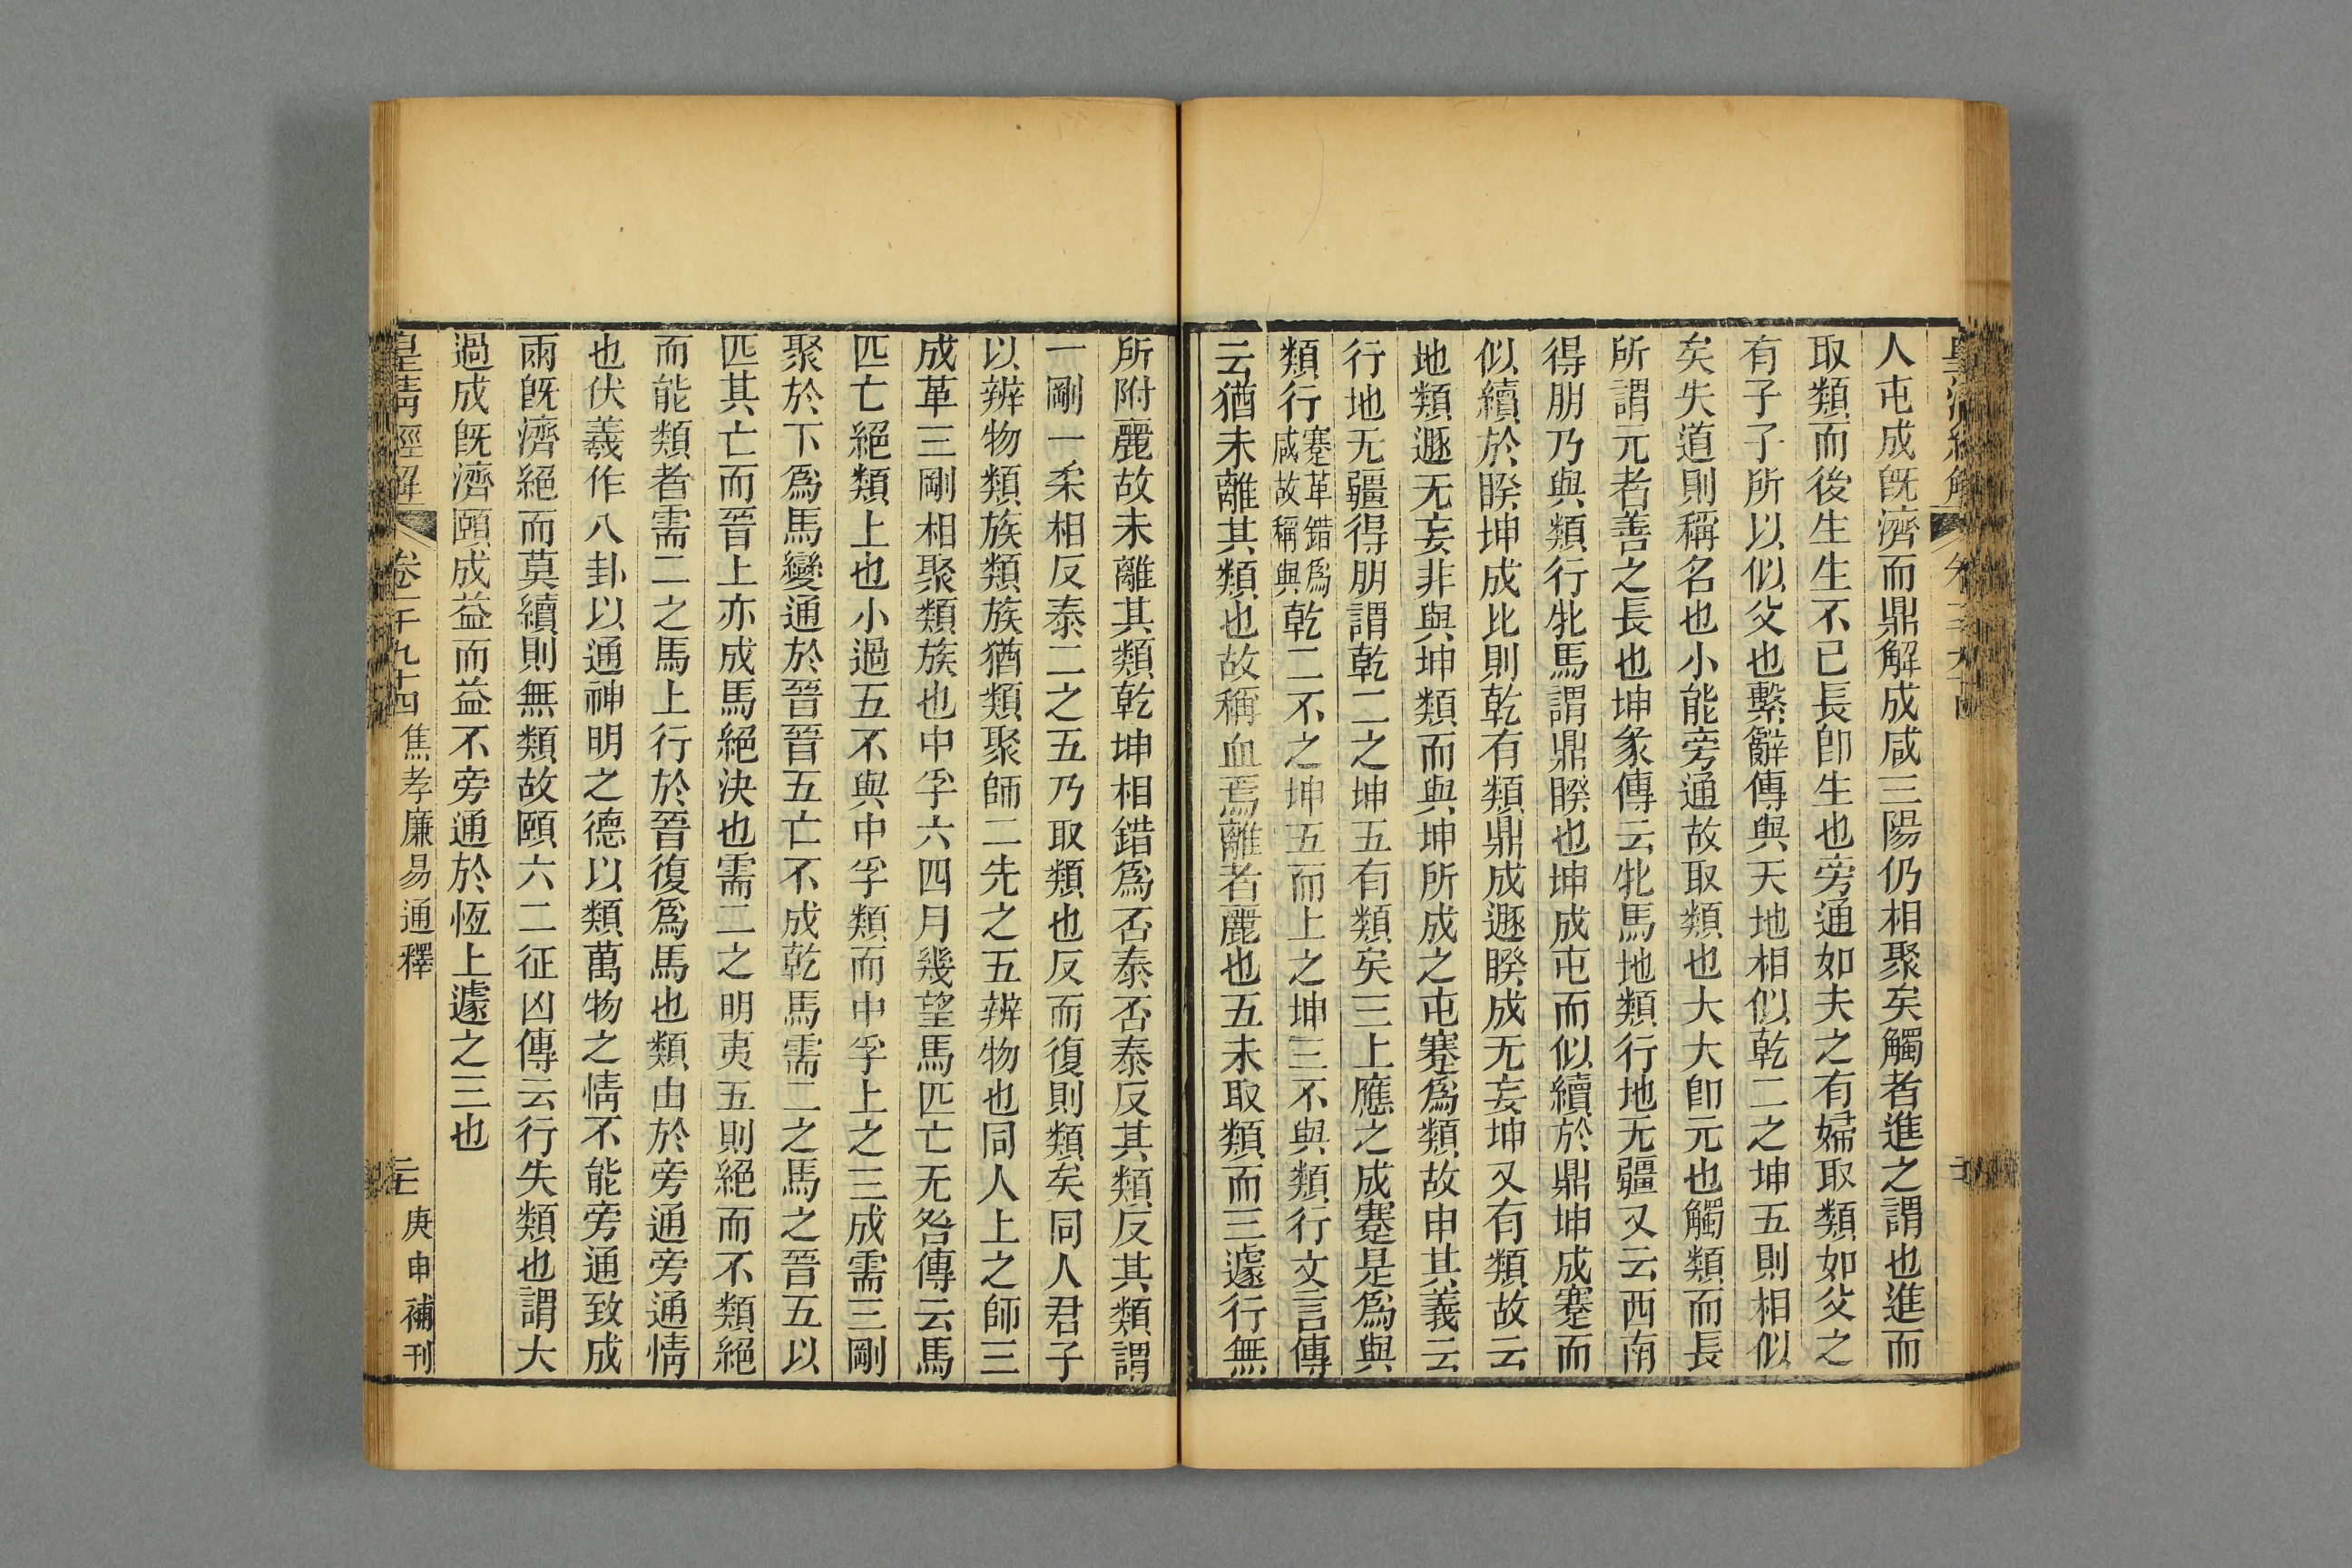 人屯成旣濟而鼎解成咸三陽仍相聚矣觸者進之謂也進而
取類而後生生不已長卽生也旁通如夫之有婦取類如父之
有子子所以似父也繫辭傳與天地相似乾二之坤五則相似
矣失道則稱名也小能旁通故取類也大大卽元也觸類而長
所謂元者善之長也坤彖傳云牝馬地類行地无疆又云西南
得朋乃與類行牝馬謂鼎睽也坤成屯而似續於鼎坤成蹇而
似續於睽坤成比則乾有類鼎成遯睽成无妄坤又有類故云
地類遯无妄非與坤類而與坤所成之屯蹇爲類故申其義云
行地无疆得朋謂乾二之坤五有類矣三上應之成蹇是爲與
類行蹇革錯爲咸故稱與乾二不之坤五而上之坤三不與類行文言傳
云猶未離其類也故稱血焉離者麗也五未取類而三遽行無
所附麗故未離其類乾坤相錯爲否泰否泰反其類反其類謂
一剛一柔相反泰二之五乃取類也反而復則類矣同人君子
以辨物類族類族猶類聚師二先之五辨物也同人上之師三
成革三剛相聚類族也中孚六四月幾望馬匹亡无咎傳云馬
匹亡絕類上也小過五不與中孚類而中孚上之三成需三剛
聚於下爲馬變通於晉晉五亡不成乾馬需二之馬之晉五以
匹其亡而晉上亦成馬絕決也需二之明夷五則絕而不類絕
而能類者需二之馬上行於晉復爲馬也類由於旁通旁通情
也伏羲作八卦以通神明之德以類萬物之情不能旁通致成
兩旣濟絕而莫續則無類故頤六二征凶傳云行失類也謂大
過成旣濟頤成益而益不旁通於恆上遽之三也
皇淸經解 卷一千九十四 焦孝廉易通釋 庚申補刊